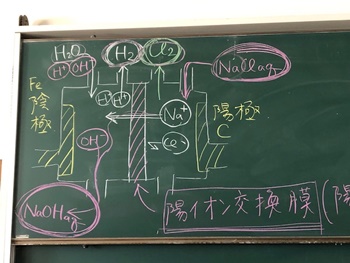 H₂O
H⁺ OH⁻
H₂
Cl₂
NaClaq
Fe
陰極
H⁺ H⁺
Na⁺
陽極
C
OH⁻
Cl⁻
NaOHaq
陽イオン交換膜(陽